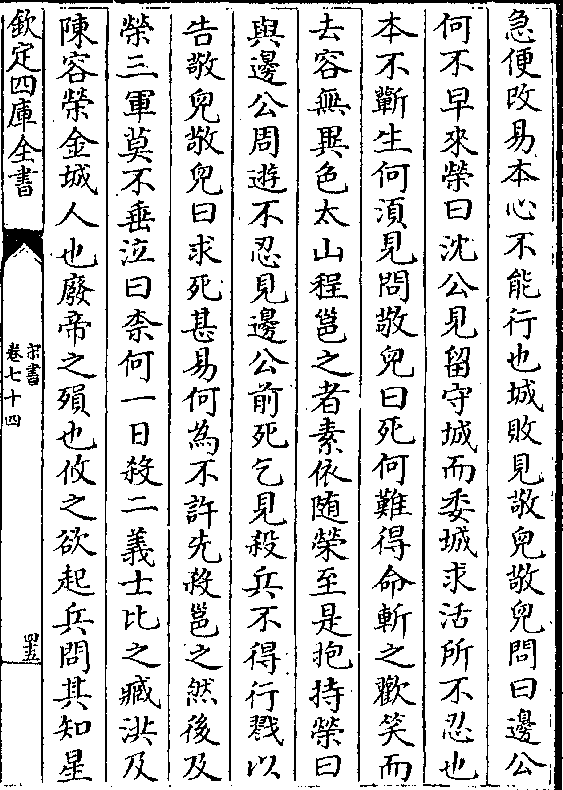 急便改易本心不能行也城敗見敬兒敬兒問曰邊公
何不早來榮曰沈公見留守城而委城求活所不忍也
本不蘄生何須見問敬兒曰死何難得命斬之歡笑而
去容無異色太山程邕之者素依随榮至是抱持榮曰
與邊公周遊不忍見邊公前死乞見殺兵不得行戮以
告敬兒敬兒曰求死甚易何為不許先殺邕之然後及
榮三軍莫不垂泣曰柰何一日殺二義士比之臧洪及
陳容榮金城人也廢帝之殞也攸之欲起兵問其知星
欽定四庫全書
宋書
卷七十四